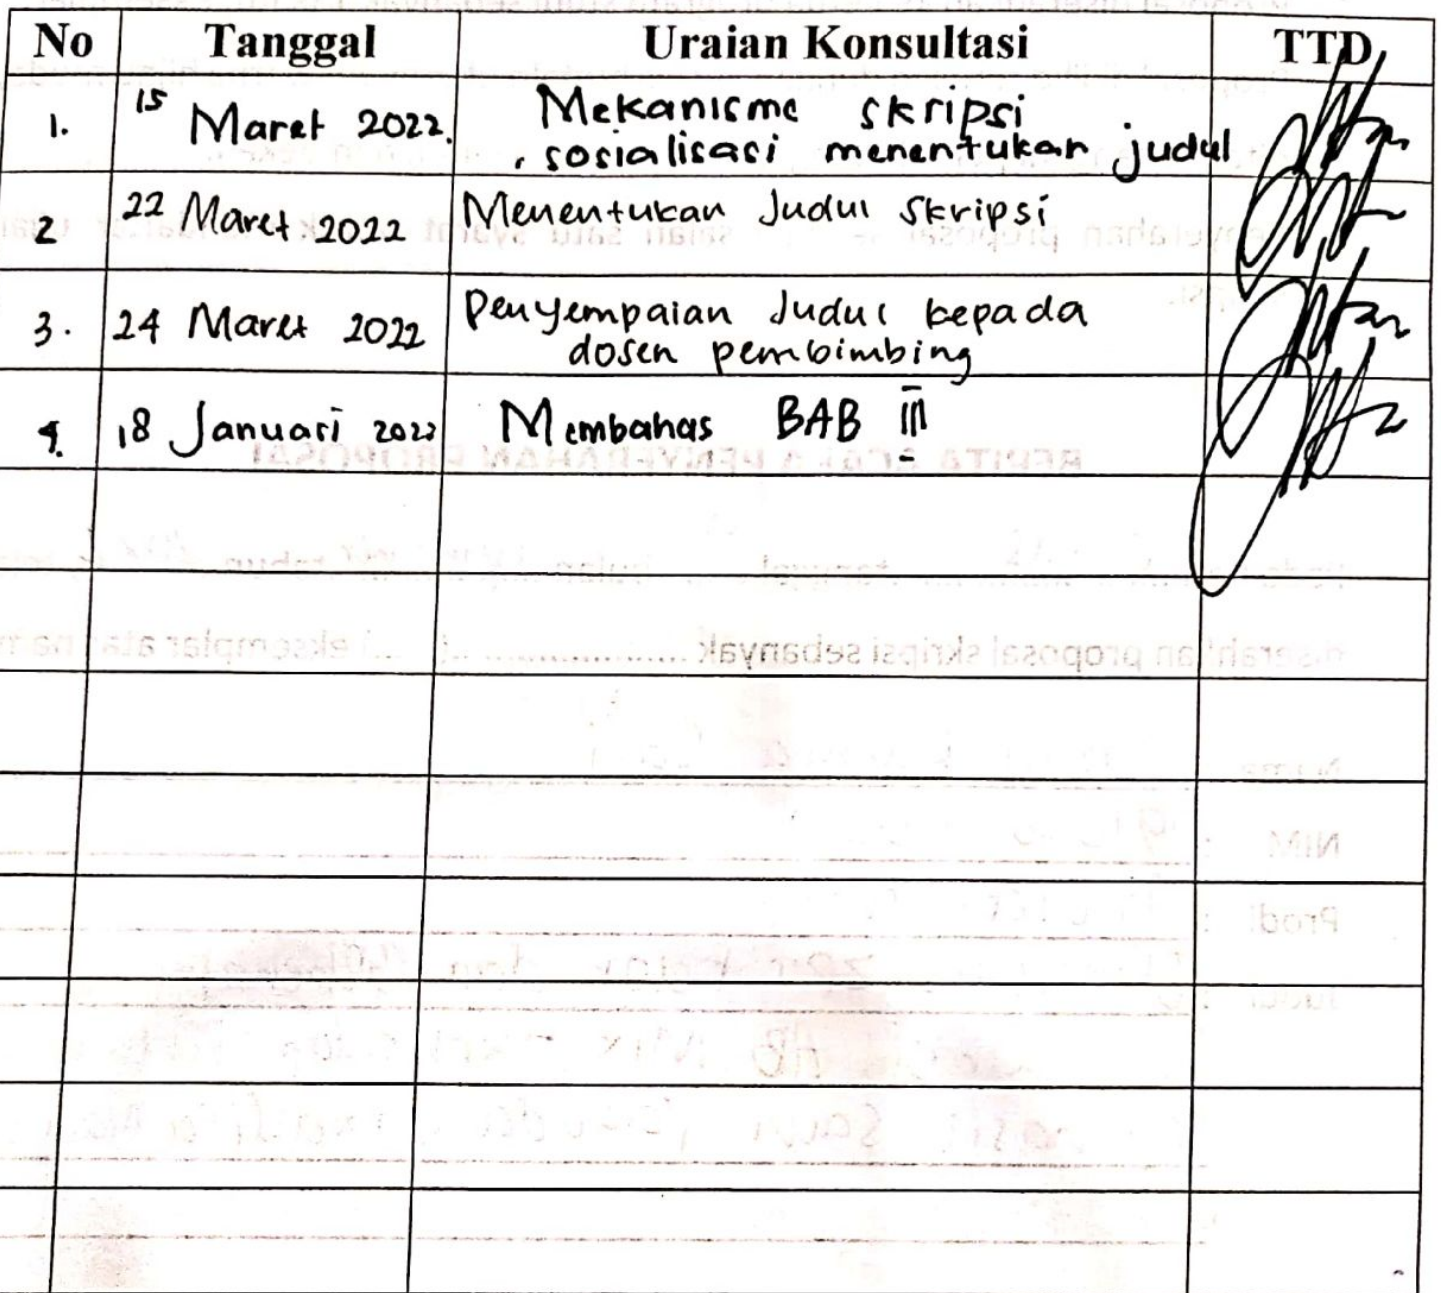 No Tanggal Uraian Konsultasi TTD
1. 15 Maret 2022. Mekanisme skripsi
, sosialisasi menentukan judul
2 22 Maret 2022 Menentukan Judul Skripsi
3. 24 Maret 2022 Penyempaian Judul kepada
dosen pembimbing
4. 18 Januari Membahas BAB III